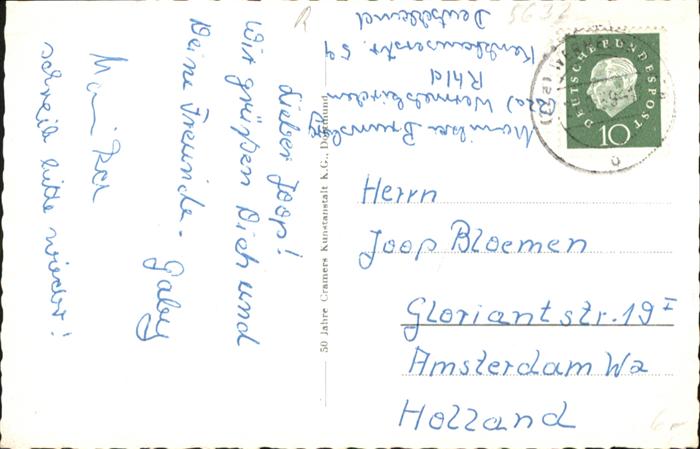 Lieber Joop!
Wir grüßen Dich und
Deine Freunde. Gaby
schreib bitte wieder!
50 Jahre Cramers Kunstanstalt K.G., Dortmund
(22a) Wermelskirchen
Rhld
str. 54
Deutschland
DEUTSCHE BUNDESPOST
10
Herrn
Joop Bloemen
Gloriantstr. 19 I
Amsterdam W2
Holland